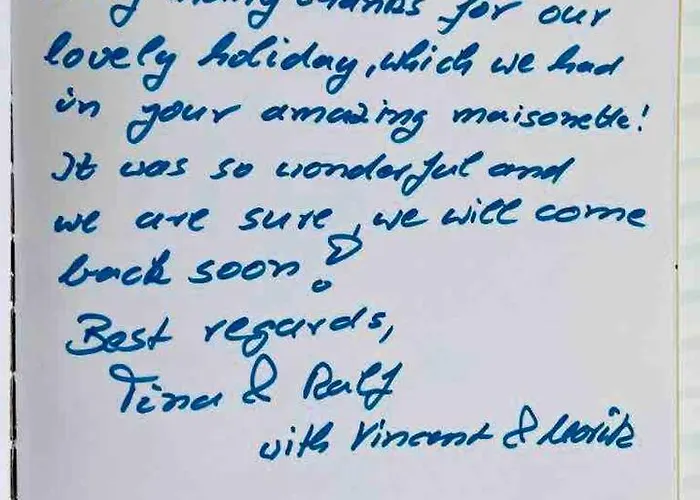 many thanks for our
lovely holiday, which we had
in your amazing maisonette!
It was so wonderful and
we are sure, we will come
back soon!
Best regards,
Tina & Ralf
with Vincent & Moritz